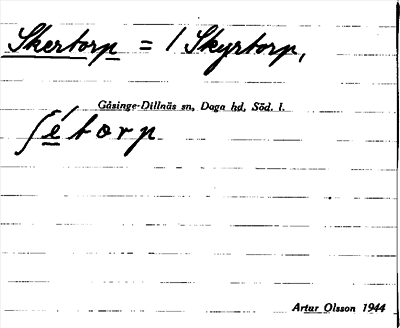 Skertorp = / Skyrtorp,
Gåsinge-Dillnäs sn, Daga hd, Söd. l.
ʃétorp
Artur Olsson 1944